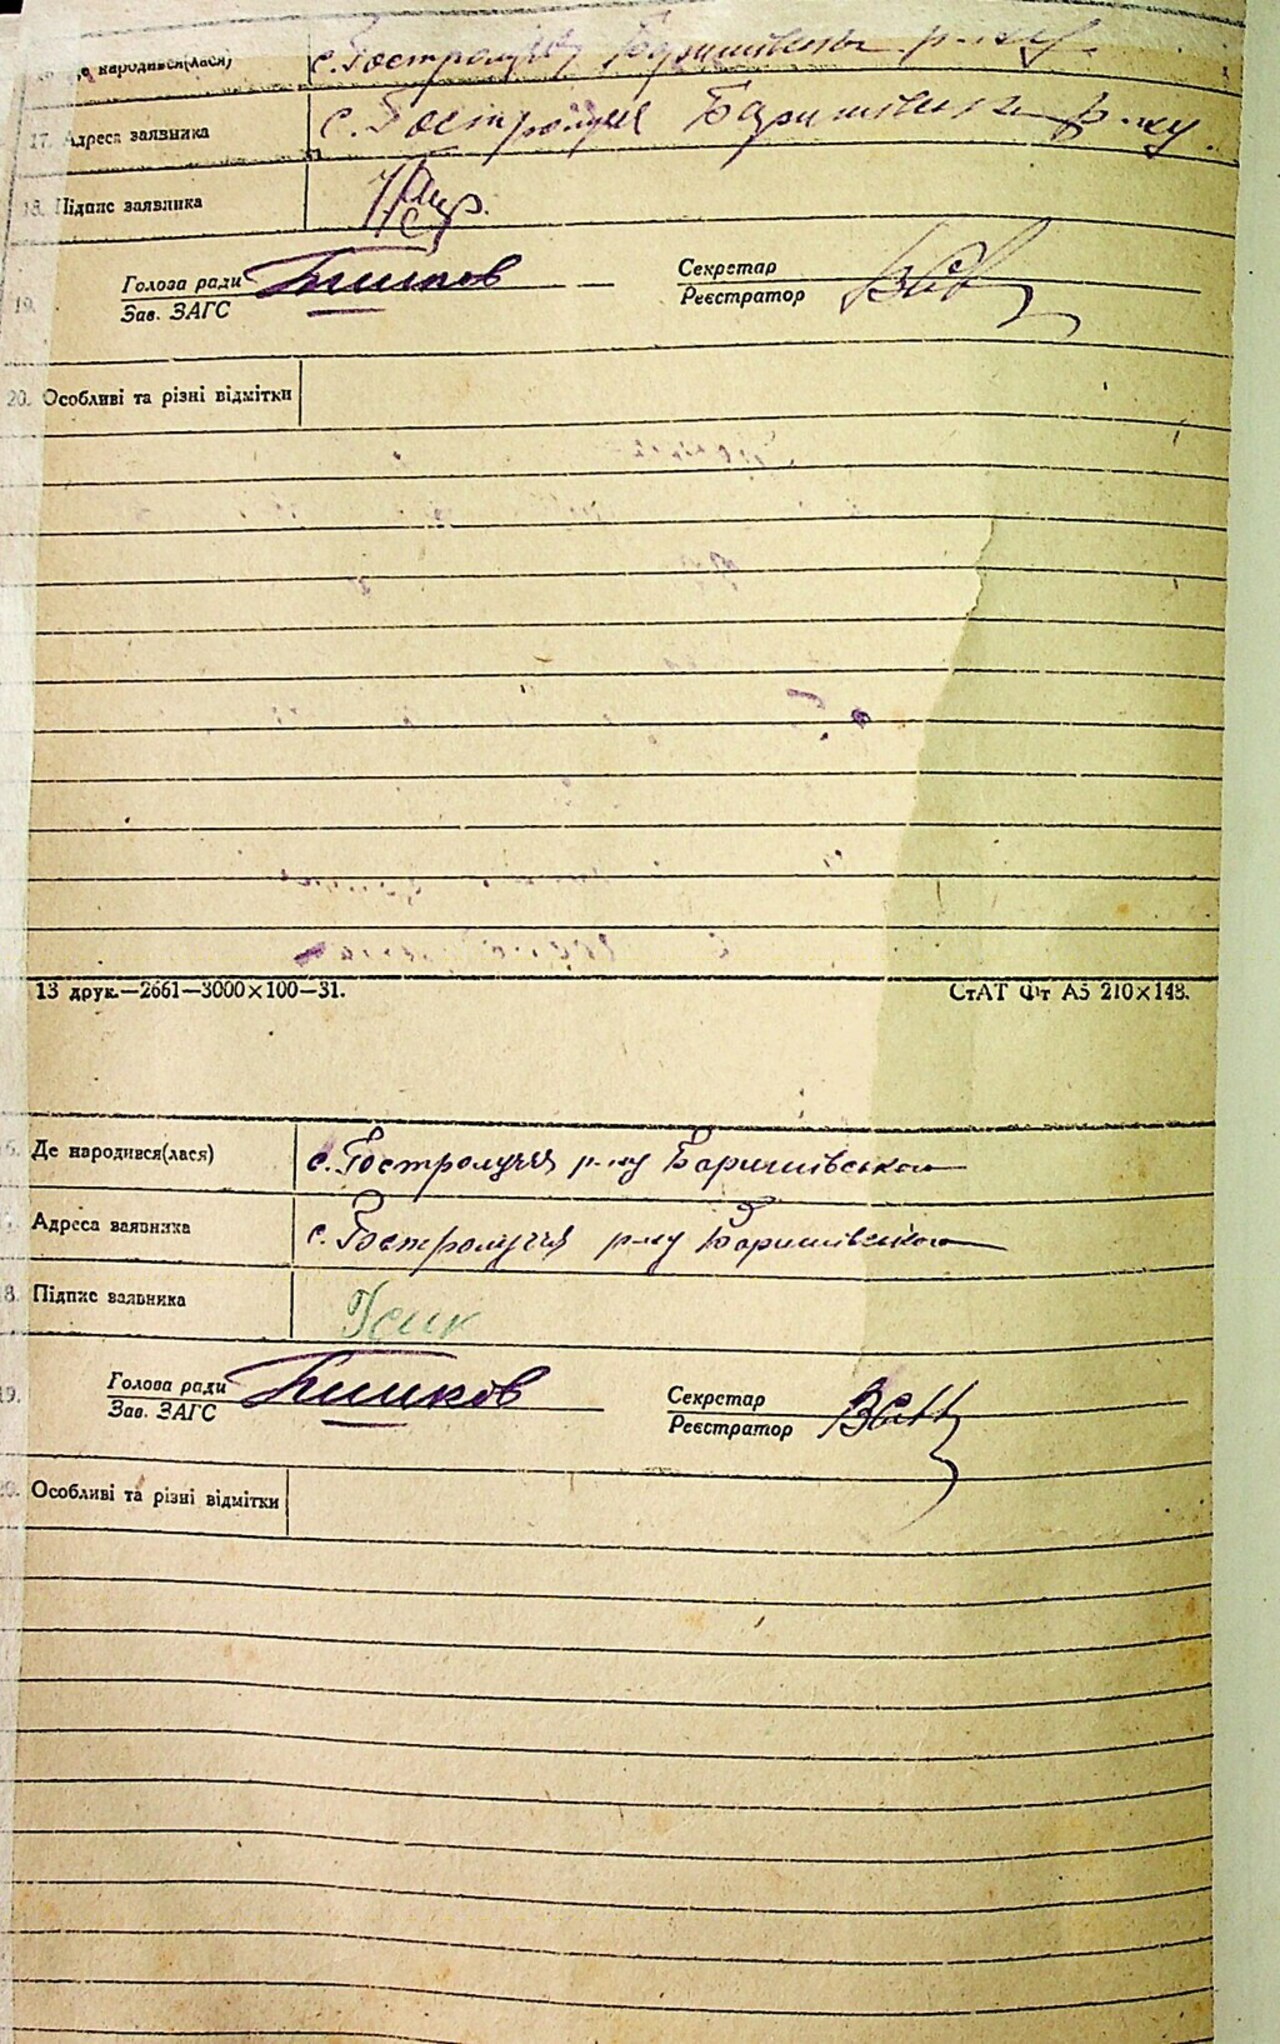 16. Де народився(лася) с. Гостролуччя Баришівськ р-ну
17. Адреса заявника с. Гостролуччя Баришівськ р-ну
18. Підпис заявника
Голова ради Секретар
19. Зав. ЗАГС Реєстратор
20. Особливі та різні відмітки
13 друк.—2661—3000×100—31. СтАТ Фт А5 210×148.
6. Де народився(лася) с. Гостролуччя р-ну Баришівського
Адреса заявника с. Гостролуччя р-ну Баришівського
8. Підпис заявника Усик
Голова ради Секретар
19. Зав. ЗАГС Реєстратор
20. Особливі та різні відмітки